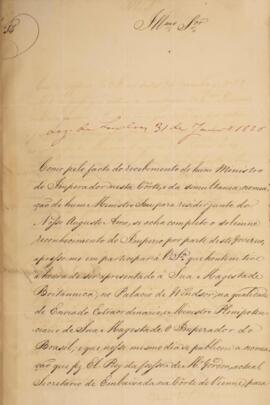 Illmo Snr
Leg. de Londres 31 de Janro 1826
Como pelo facto do recebimento de hum Ministro
do Imperador nesta Côrte, e da simultanea nomea-
ção de hum Ministro Seu para residir junto do
Nosso Augusto Amo, se acha completo o solemne
reconhecimento do Imperio por parte deste Governo,
apresso-me em participar a V. Sa. que hontem tive
a honra de ser apresentado á Sua Magestade
Britannica, no Palacio de Windsor, na qualidade
de Enviado Extraordinario, e Ministro Plenipoten-
ciario de Sua Magestade O Imperador do
Brasil, e que nesse mesmo dia se publicou a nomea-
ção que fez El Rey da pessoa de Mr. Gordon, actual
Secretario de Embaixada na Côrte de Vienna, para